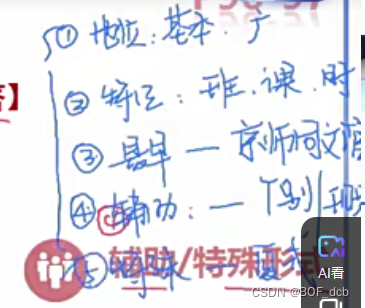 ① 地位:基本.广
② 特征:班.课.时
】
③ 最早 — 京师同文
④ 辅助:— 个别
辅助/特殊形
⑤ 特殊 —
AI看
CSDN @BOF_dcb